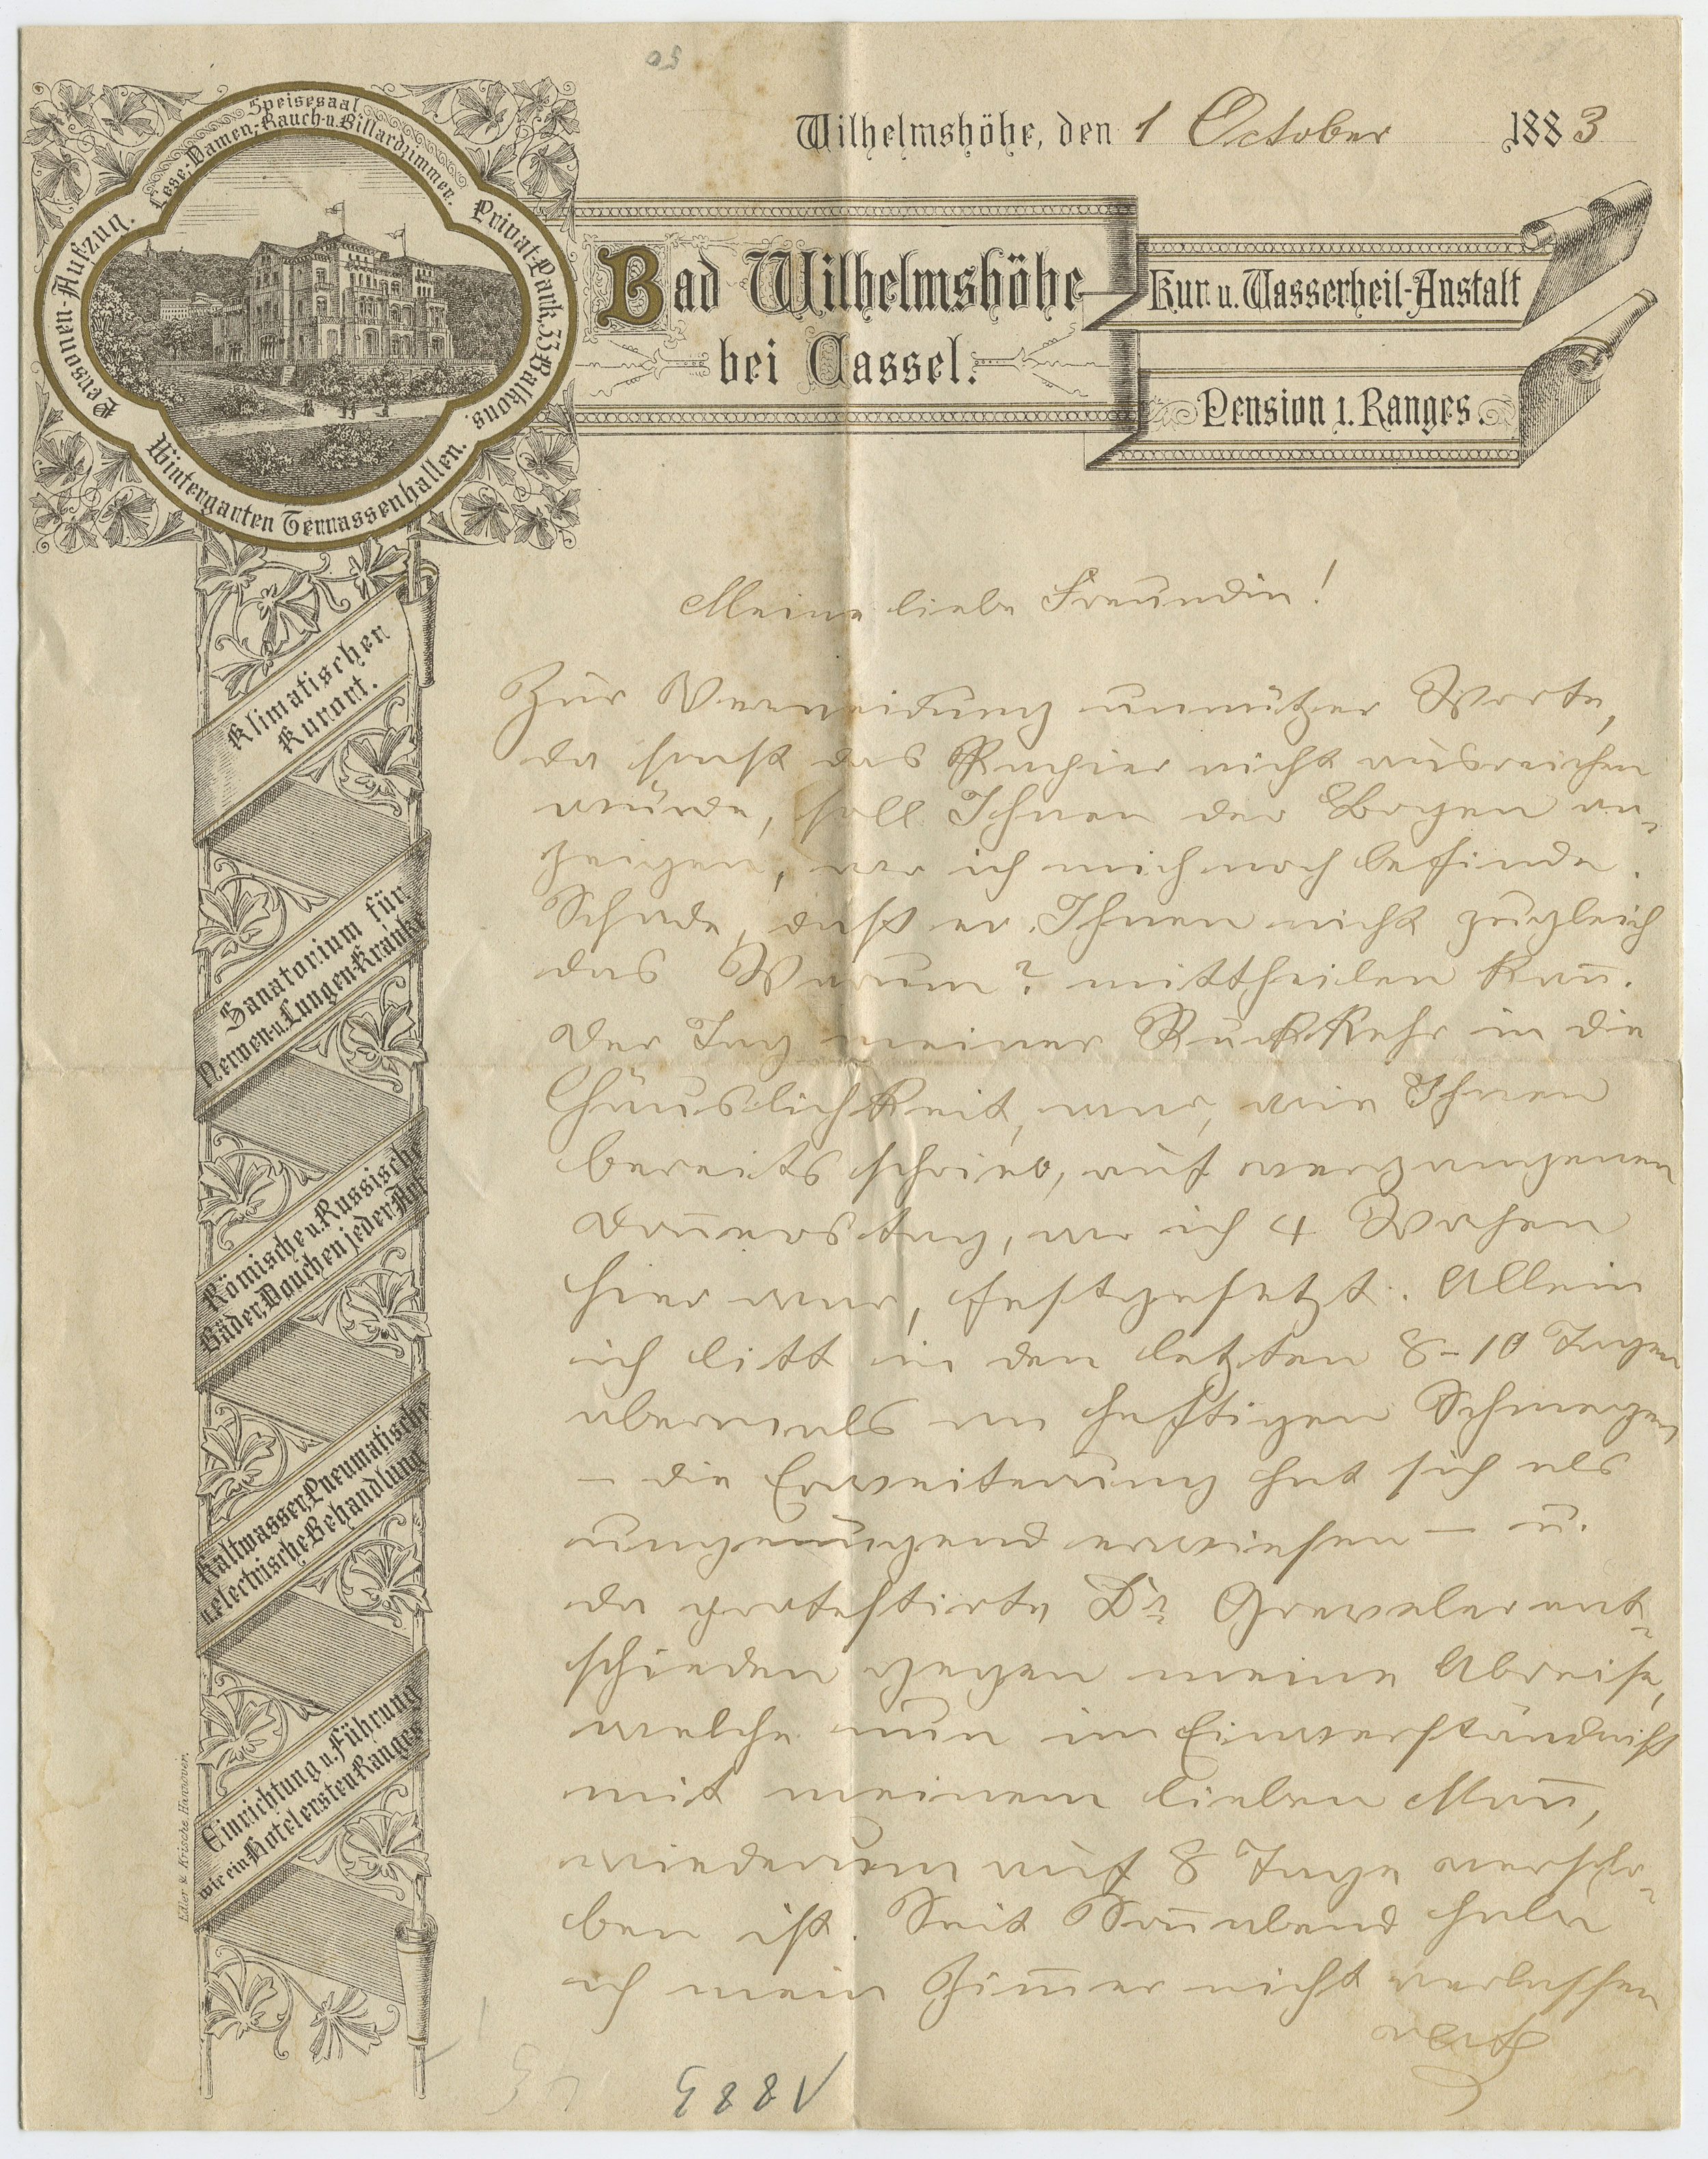 Wilhelmshöhe, den 1 October 1883
Speisesaal
Lese-, Damen-, Rauch- u. Billardzimmer.
Personen-Aufzug.
Privat-Park, 33 Balkons.
Wintergarten Terrassenhallen.
Bad Wilhelmshöhe
bei Cassel.
Kur. u. Wasserheil-Anstalt
Pension 1. Ranges.
Klimatischer
Kurort.
Sanatorium für
Nerven- u. Lungen-Kranke
Römische u. Russische
Bäder, Douchen jeder Art
Kaltwasser, Pneumatische
u. electrische Behandlung
Einrichtung u. Führung
wie ein Hotel ersten Ranges
Edler & Krische, Hannover.
Meine liebe Freundin!
Zur Vermeidung unnützer Worte,
da sonst das Papier nicht ausreichen
würde, soll Ihnen der Bogen an-
zeigen, wo ich mich noch befinde.
Schade, daß er Ihnen nicht zugleich
das Warum? mittheilen kan̄.
Der Tag meiner Rückkehr in die
Häuslichkeit, war, wie Ihnen
bereits schrieb, auf vergangenen
Don̄erstag, wo ich 4 Wochen
hier war, festgesetzt. Allein
ich litt in den letzten 8-10 Tagen
abermals an heftigen Schmerzen,
– die Erweiterung hat sich als
ungenügend erwiesen – u.
da protestirte Dr Greveler ent-
schieden gegen meine Abreise,
welche nun im Einverständniß
mit meinem lieben Man̄,
wiederum auf 8 Tage verscho-
ben ist. Seit Son̄abend habe
ich mein Zim̄er nicht verlassen
1883